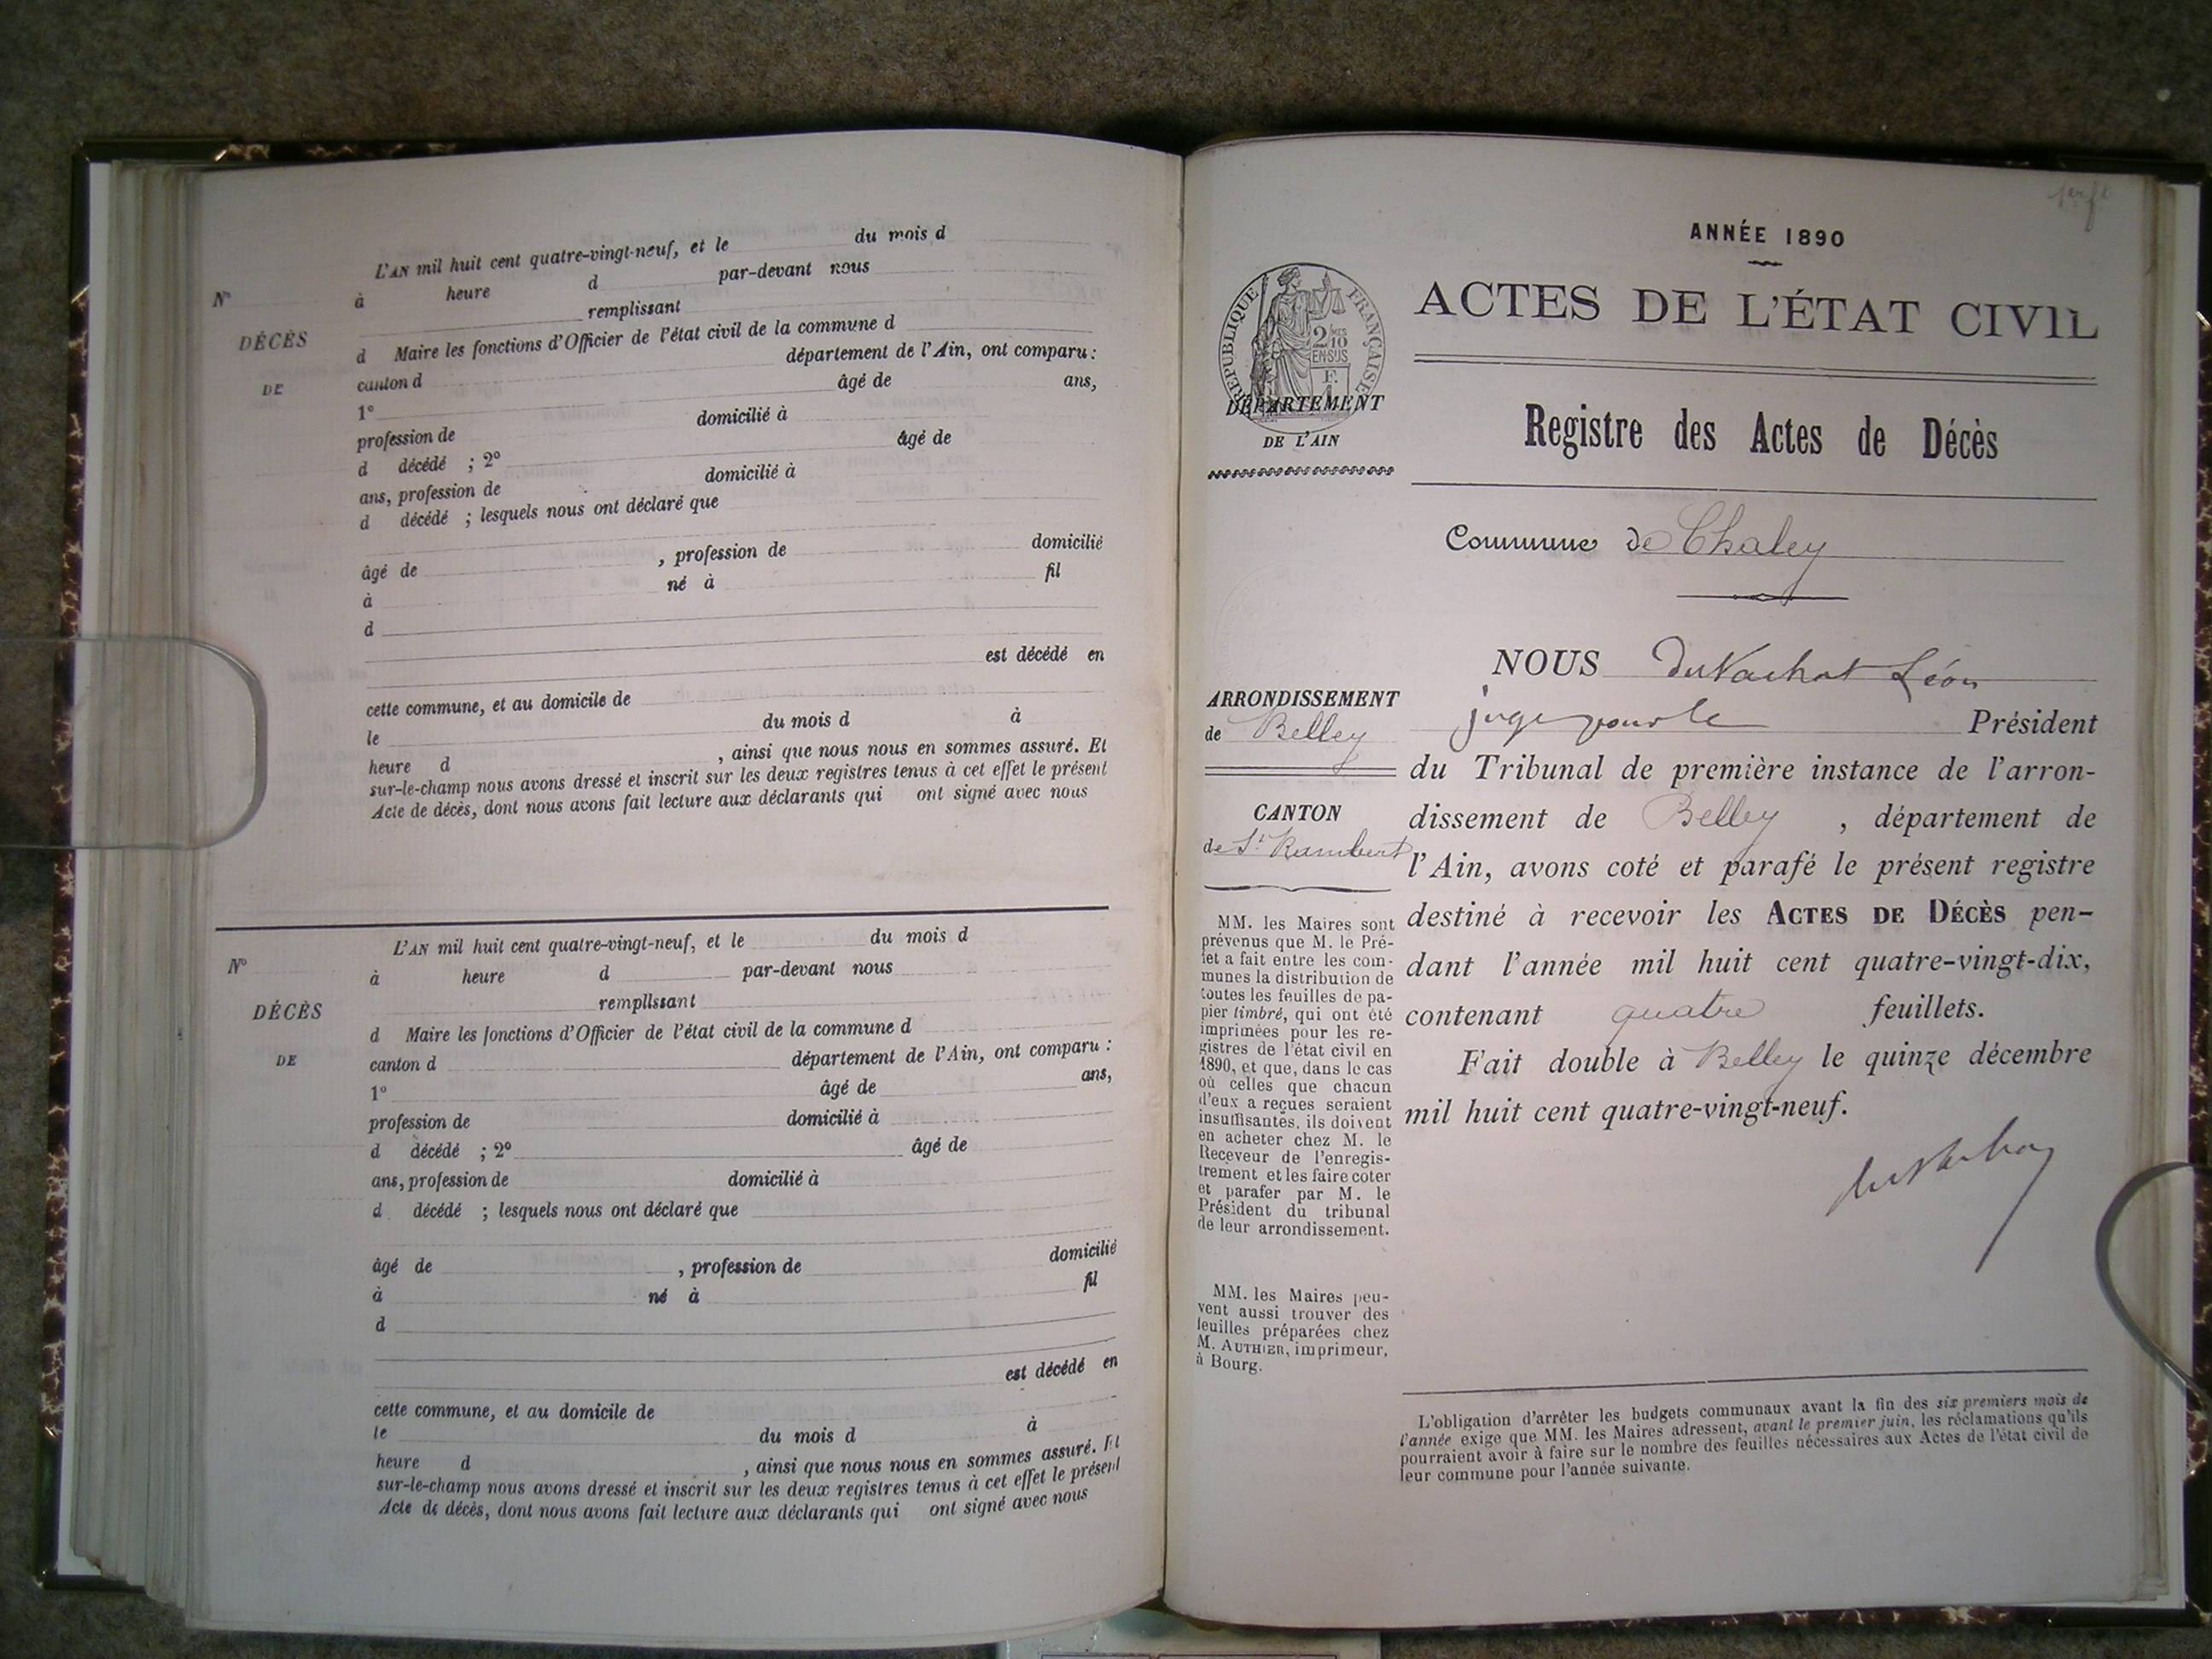 L'AN mil huit cent quatre-vingt-neuf, et le du mois d
N° à heure d par-devant nous
remplissant
DÉCÈS
d Maire les fonctions d'Officier de l'état civil de la commune d
DE
canton d département de l'Ain, ont comparu :
1° âgé de ans,
profession de domicilié à
d décédé ; 2° âgé de
ans, profession de domicilié à
d décédé ; lesquels nous ont déclaré que
âgé de , profession de domicilié
à né à fil
d
est décédé en
cette commune, et au domicile de
le du mois d à
heure d , ainsi que nous nous en sommes assuré. Et
sur-le-champ nous avons dressé et inscrit sur les deux registres tenus à cet effet le présent
Acte de décès, dont nous avons fait lecture aux déclarants qui ont signé avec nous
L'AN mil huit cent quatre-vingt-neuf, et le du mois d
N° à heure d par-devant nous
remplissant
DÉCÈS
d Maire les fonctions d'Officier de l'état civil de la commune d
DE
canton d département de l'Ain, ont comparu :
1° âgé de ans,
profession de domicilié à
d décédé ; 2° âgé de
ans, profession de domicilié à
d décédé ; lesquels nous ont déclaré que
âgé de , profession de domicilié
à né à fil
d
est décédé en
cette commune, et au domicile de
le du mois d à
heure d , ainsi que nous nous en sommes assuré. Et
sur-le-champ nous avons dressé et inscrit sur les deux registres tenus à cet effet le présent
Acte de décès, dont nous avons fait lecture aux déclarants qui ont signé avec nous
ANNÉE 1890
ACTES DE L'ÉTAT CIVIL
RÉPUBLIQUE FRANÇAISE
2/10 EN SUS
F. 1
DÉPARTEMENT
DE L'AIN
Registre des Actes de Décès
Commune de Chaley
ARRONDISSEMENT
de Belley
CANTON
de St Rambert
MM. les Maires sont
prévenus que M. le Pré-
fet a fait entre les com-
munes la distribution de
toutes les feuilles de pa-
pier timbré, qui ont été
imprimées pour les re-
gistres de l'état civil en
1890, et que, dans le cas
où celles que chacun
d'eux a reçues seraient
insuffisantes, ils doivent
en acheter chez M. le
Receveur de l'enregis-
trement et les faire coter
et parafer par M. le
Président du tribunal
de leur arrondissement.
MM. les Maires peu-
vent aussi trouver des
feuilles préparées chez
M. AUTHIER, imprimeur,
à Bourg.
NOUS Du Vachat Léon
juge pour le Président
du Tribunal de première instance de l'arron-
dissement de Belley , département de
l'Ain, avons coté et parafé le présent registre
destiné à recevoir les ACTES DE DÉCÈS pen-
dant l'année mil huit cent quatre-vingt-dix,
contenant quatre feuillets.
Fait double à Belley le quinze décembre
mil huit cent quatre-vingt-neuf.
L'obligation d'arrêter les budgets communaux avant la fin des six premiers mois de
l'année exige que MM. les Maires adressent, avant le premier juin, les réclamations qu'ils
pourraient avoir à faire sur le nombre des feuilles nécessaires aux Actes de l'état civil de
leur commune pour l'année suivante.